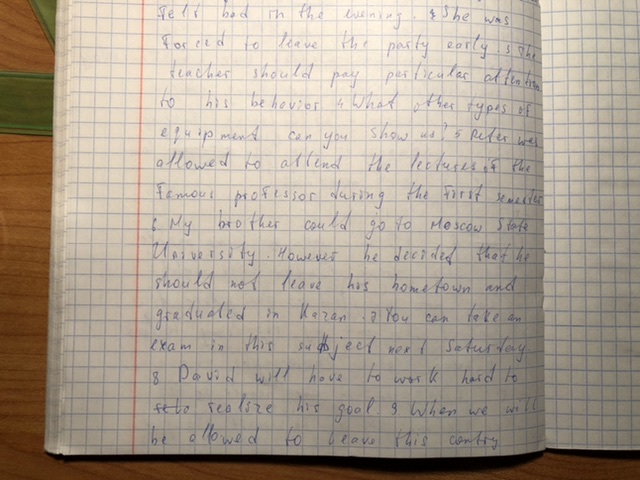 felt bad in the evening. 2 She was
forced to leave the party early. 3 The
teacher should pay particular attention
to his behavior 4 What other types of
equipment can you show us? 5 Peter was
allowed to attend the lectures of the
famous professor during the first semester
6 My brother could go to Moscow State
University. However he decided that he
should not leave his hometown and
graduated in Kazan. 7 You can take an
exam in this subject next Saturday
8 David will have to work hard to
realize his goal 9 When we will
be allowed to leave this contry